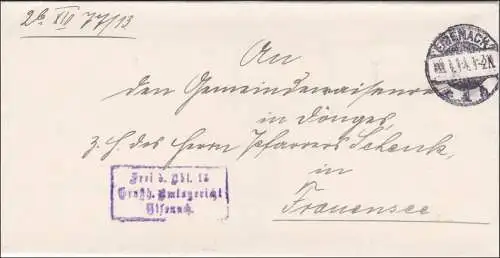 2b XIII 77/13
EISENACH
1.14. 1-2N.
An
den Gemeindewaisenrat
in Dönges,
z. H. des Herrn Pfarrers Schenk,
in
Frauensee
Frei d. Abl. 13
Großh. Amtsgericht
Eisenach.